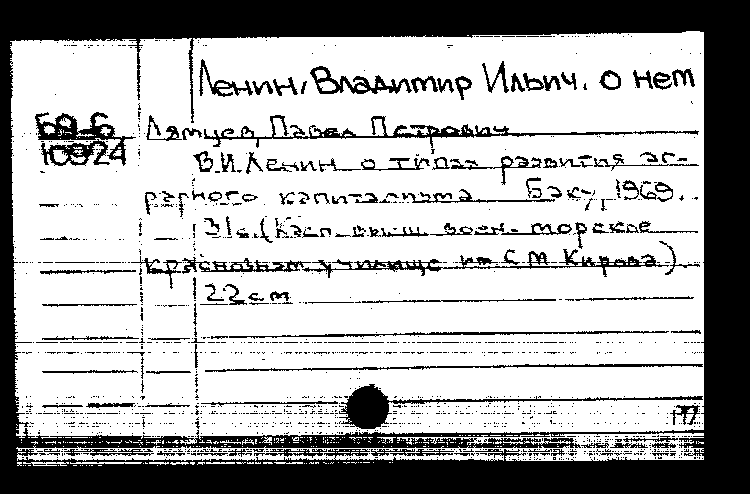 Ленин, Владимир Ильич. о нем
69-6
10924
Лямцев, Павел Петрович
В.И.Ленин о типах развития аг-
рарного капитализма. Баку, 1969.
31с. (Касп. высш. воен.-морское
краснознам. училище им С М Кирова)
22см